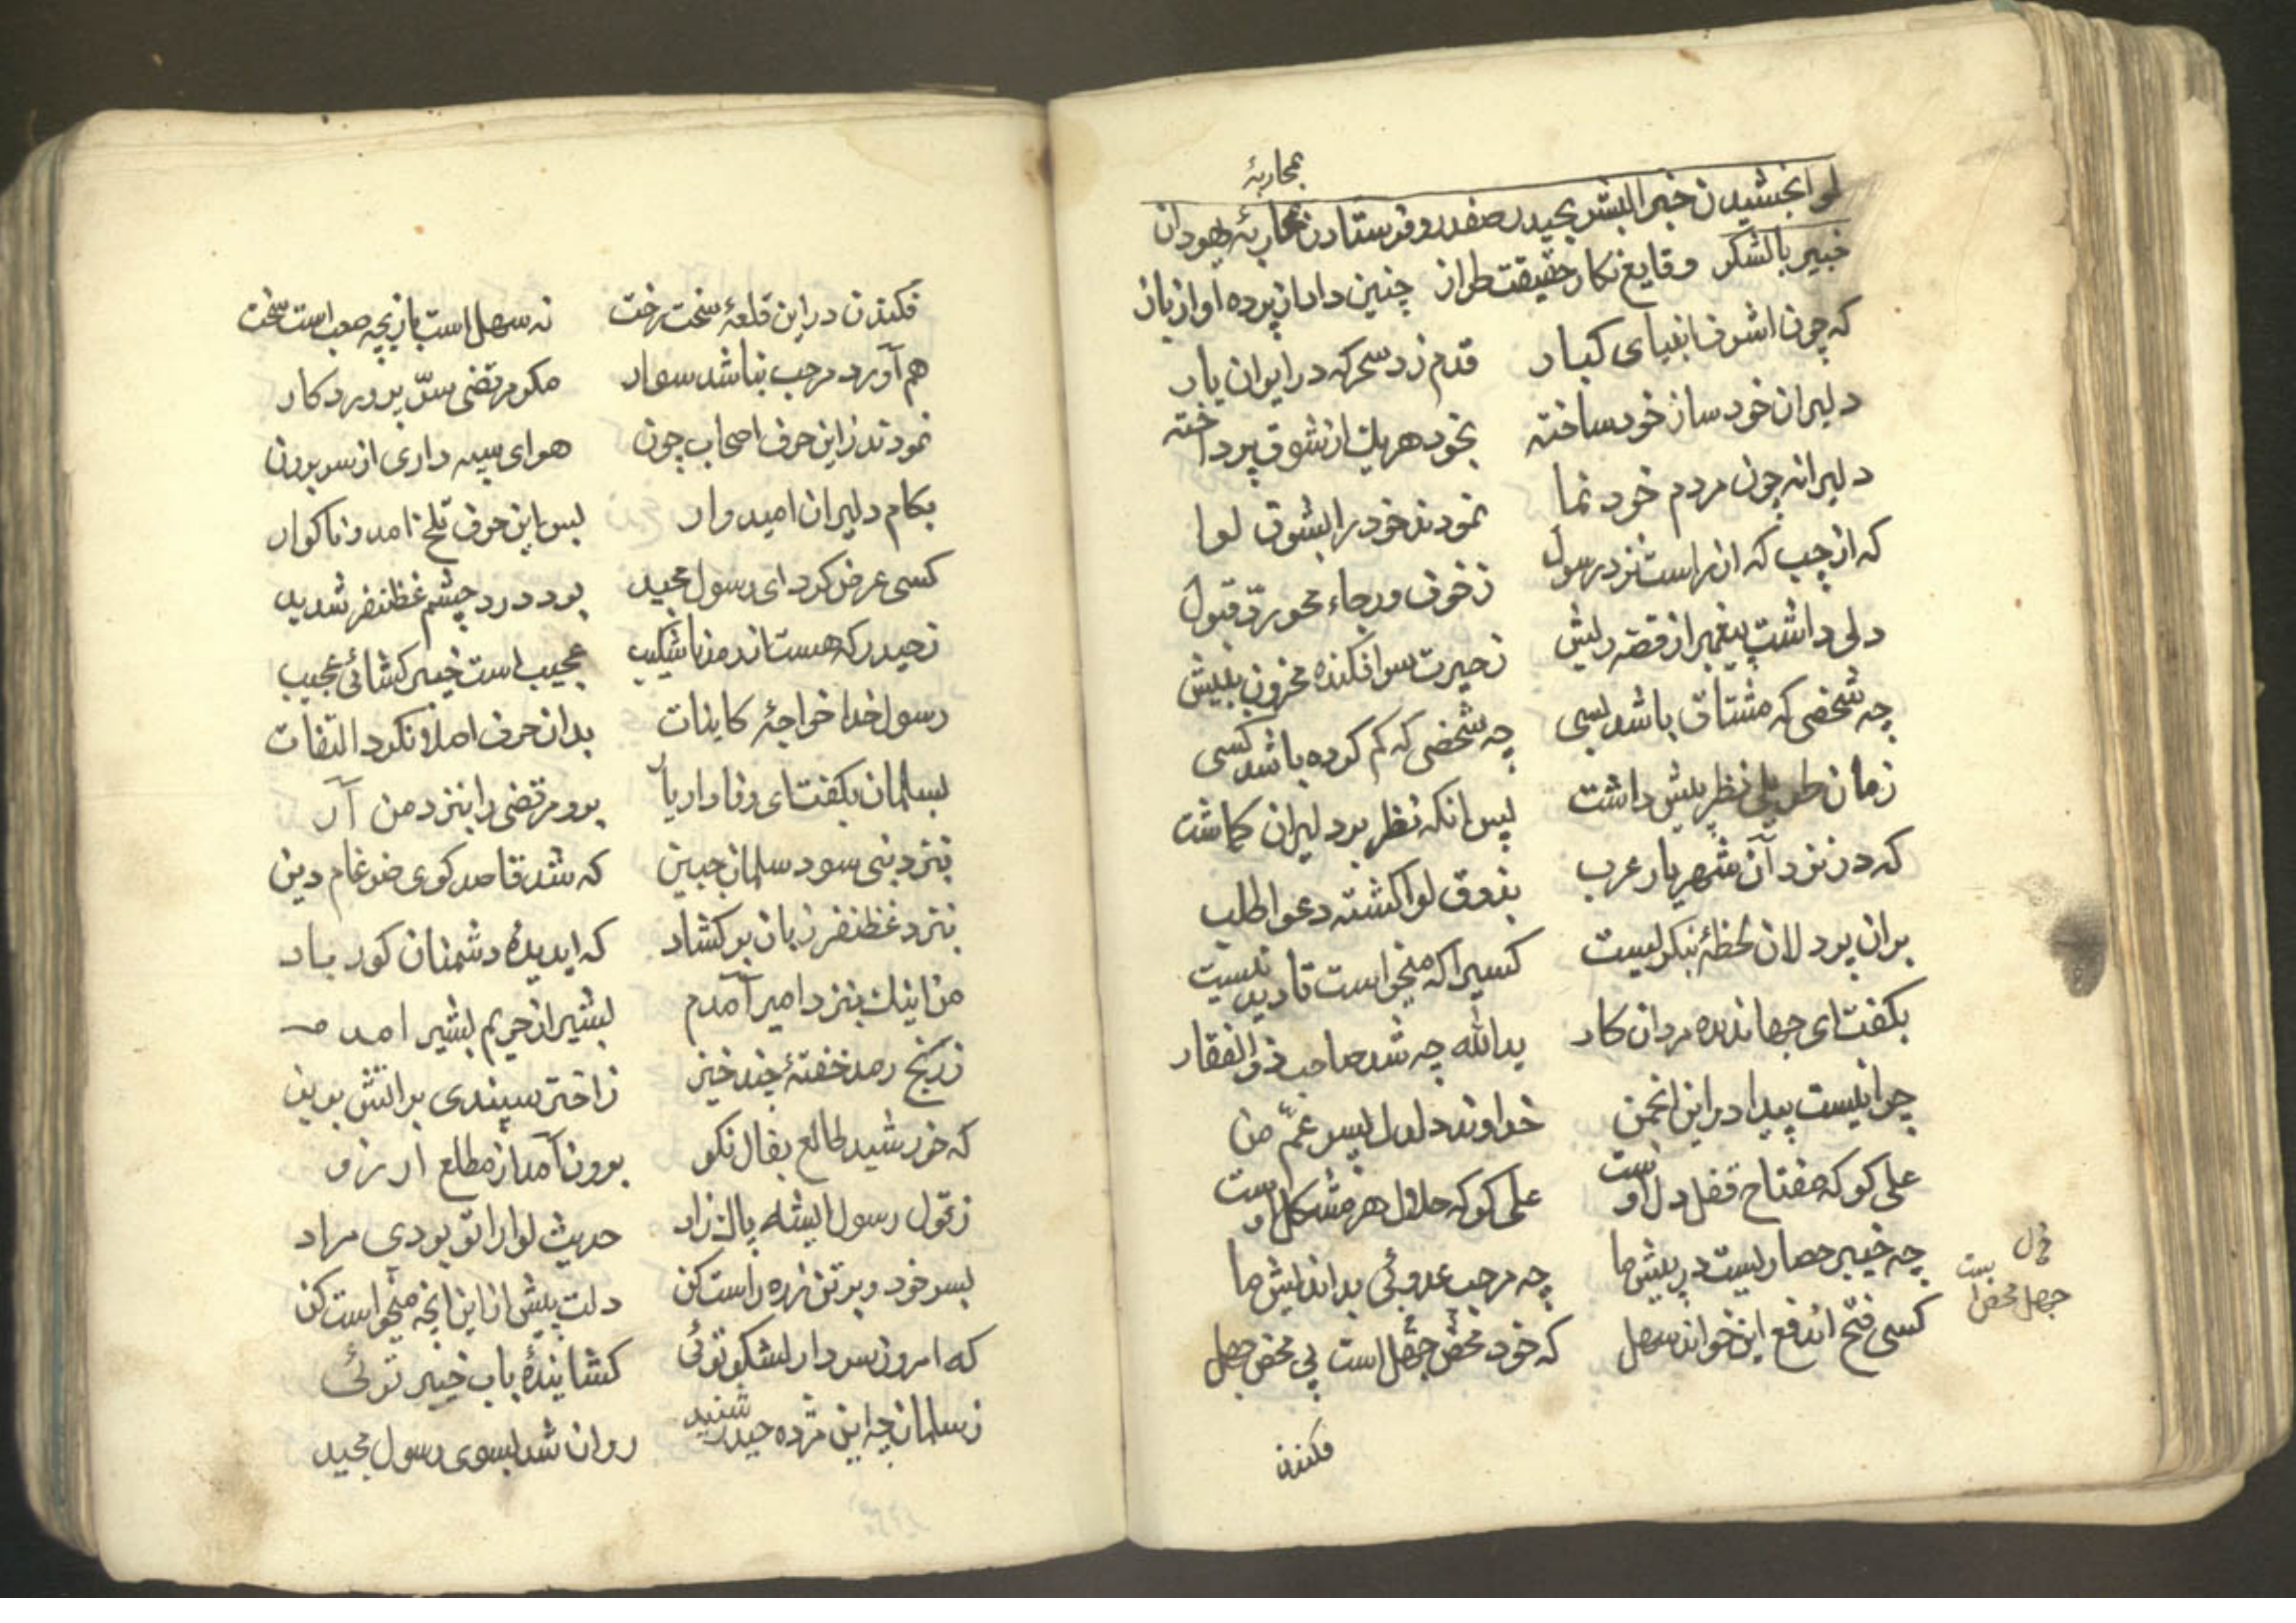 بمحاربهٔ
لوا بخشیدن خیر البشر بحیدر صفدر و فرستادن بمحاربهٔ یهودان
خیبر با لشکر وقایع نکار حقیقت طراز چنین داد از پرده آواز باز
که چون اشرف انبیای کبار قدم زد سحرکه در ایوان بار
دلیران خود ساز خود ساخته بخود هریك از شوق پرداخته
دلیرانه چون مردم خود نما نمودند خود را بشوق لوا
که از چپ که از راست نزد رسول ز خوف و رجاء محو ردّ قبول
دلی داشت پیغمبر از قصه ریش ز حیرت سر افکنده محزون به پیش
چه شخصی که مشتاق باشد بسی چه شخصی که کم کرده باشد کسی
زمان طویلی نظر پیش داشت پس انکه نظر بر دلیران کماشت
که در نزد آن شهریار عرب بذوق لوا کشته دعوا طلب
بران پردلان لحظهٔ بنکریست کسیرا که میخواست تا دید نیست
بکفت ای جهاندیده مردان کار یدالله چه شد صاحب ذوالفقار
چرا نیست پیدا در این انجمن خداوند دلدل پسر عمّ من
علی کو که مفتاح قفل دل اوست علی کو که حلال هر مشکل اوست
چه خیبر حصاریست در پیش ما چه مرحب عدوئی بد اندیش ما
کسی فتح ائدفع این خواند سهل که خود محض جهل است بی محض جهل
جهل محض است
فکندن
فکندن در این قلعهٔ سخت رخت نه سهل است بازیچه صعب است سخت
هم آورد مرحب نباشد سوار مکر مرتضی سرّ پروردکار
نمودند زاین حرف اصحاب چون هوای سپه داری از سر برون
بکام دلیران امیدوار بس این حرف تلخ امد و ناکوار
کسی عرض کرد ای رسول مجید بود درد چشم غظنفر شدید
ز حیدر که هست از رمد ناشکیب عجیب است خیبر کشائی عجیب
رسول خدا خواجهٔ کاینات بدان حرف اصلا نکرد التفات
بسلمان بکفت ای وفادار یار برو مرتضی را بنزد من آر
بنزد نبی سود سلمان جبین که شد قاصد کوی ضرغام دین
بنزد غظنفر زبان بر کشاد که ای دیدهٔ دشمنان کور باد
من اینك بنزد امیر آمدم بشیر از حریم بشیر امدم
ز رنج رمد خفتهٔ چند خیز ز اختر سپندی بر اتش بریز
که خورشید طالع بفال نکو برون آمد از مطلع ارزو
ز قول رسول ایشه پاك زاد حدیث لوا را تو بودی مراد
بسر خود و بر تن زره راست کن دلت پیش از این انچه میخواست کن
که امروز سردار لشکر توئی کشایندهٔ باب خیبر توئی
ز سلمان چه این مژده حیدر شنید روان شد بسوی رسول مجید